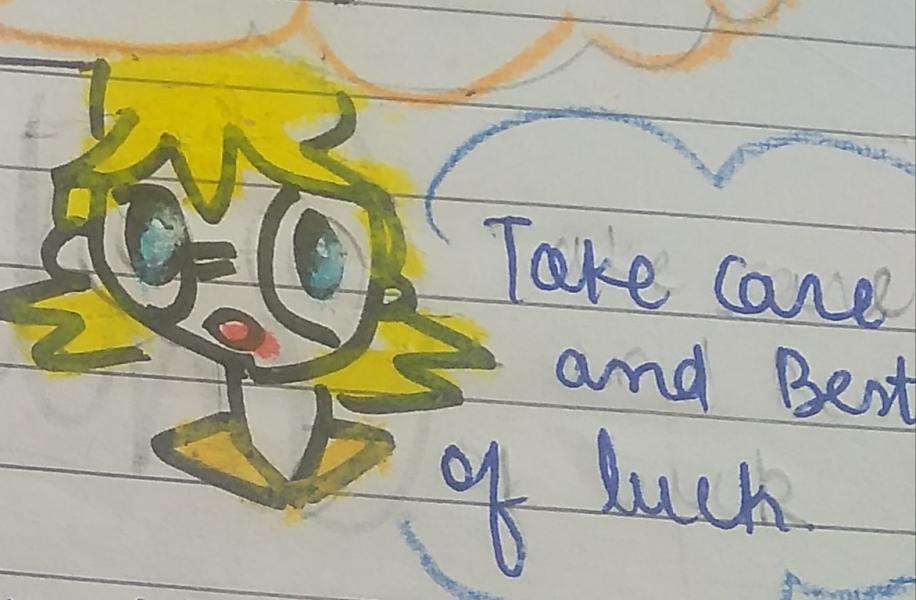 Take care
and Best
of luck